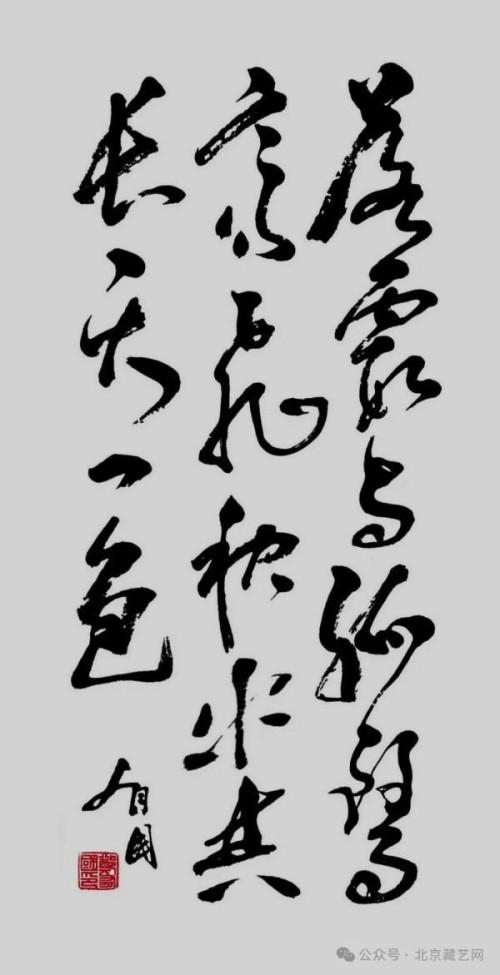 落霞与孤鹜
齐飞秋水共
长天一色
有国
公众号·北京藏艺网